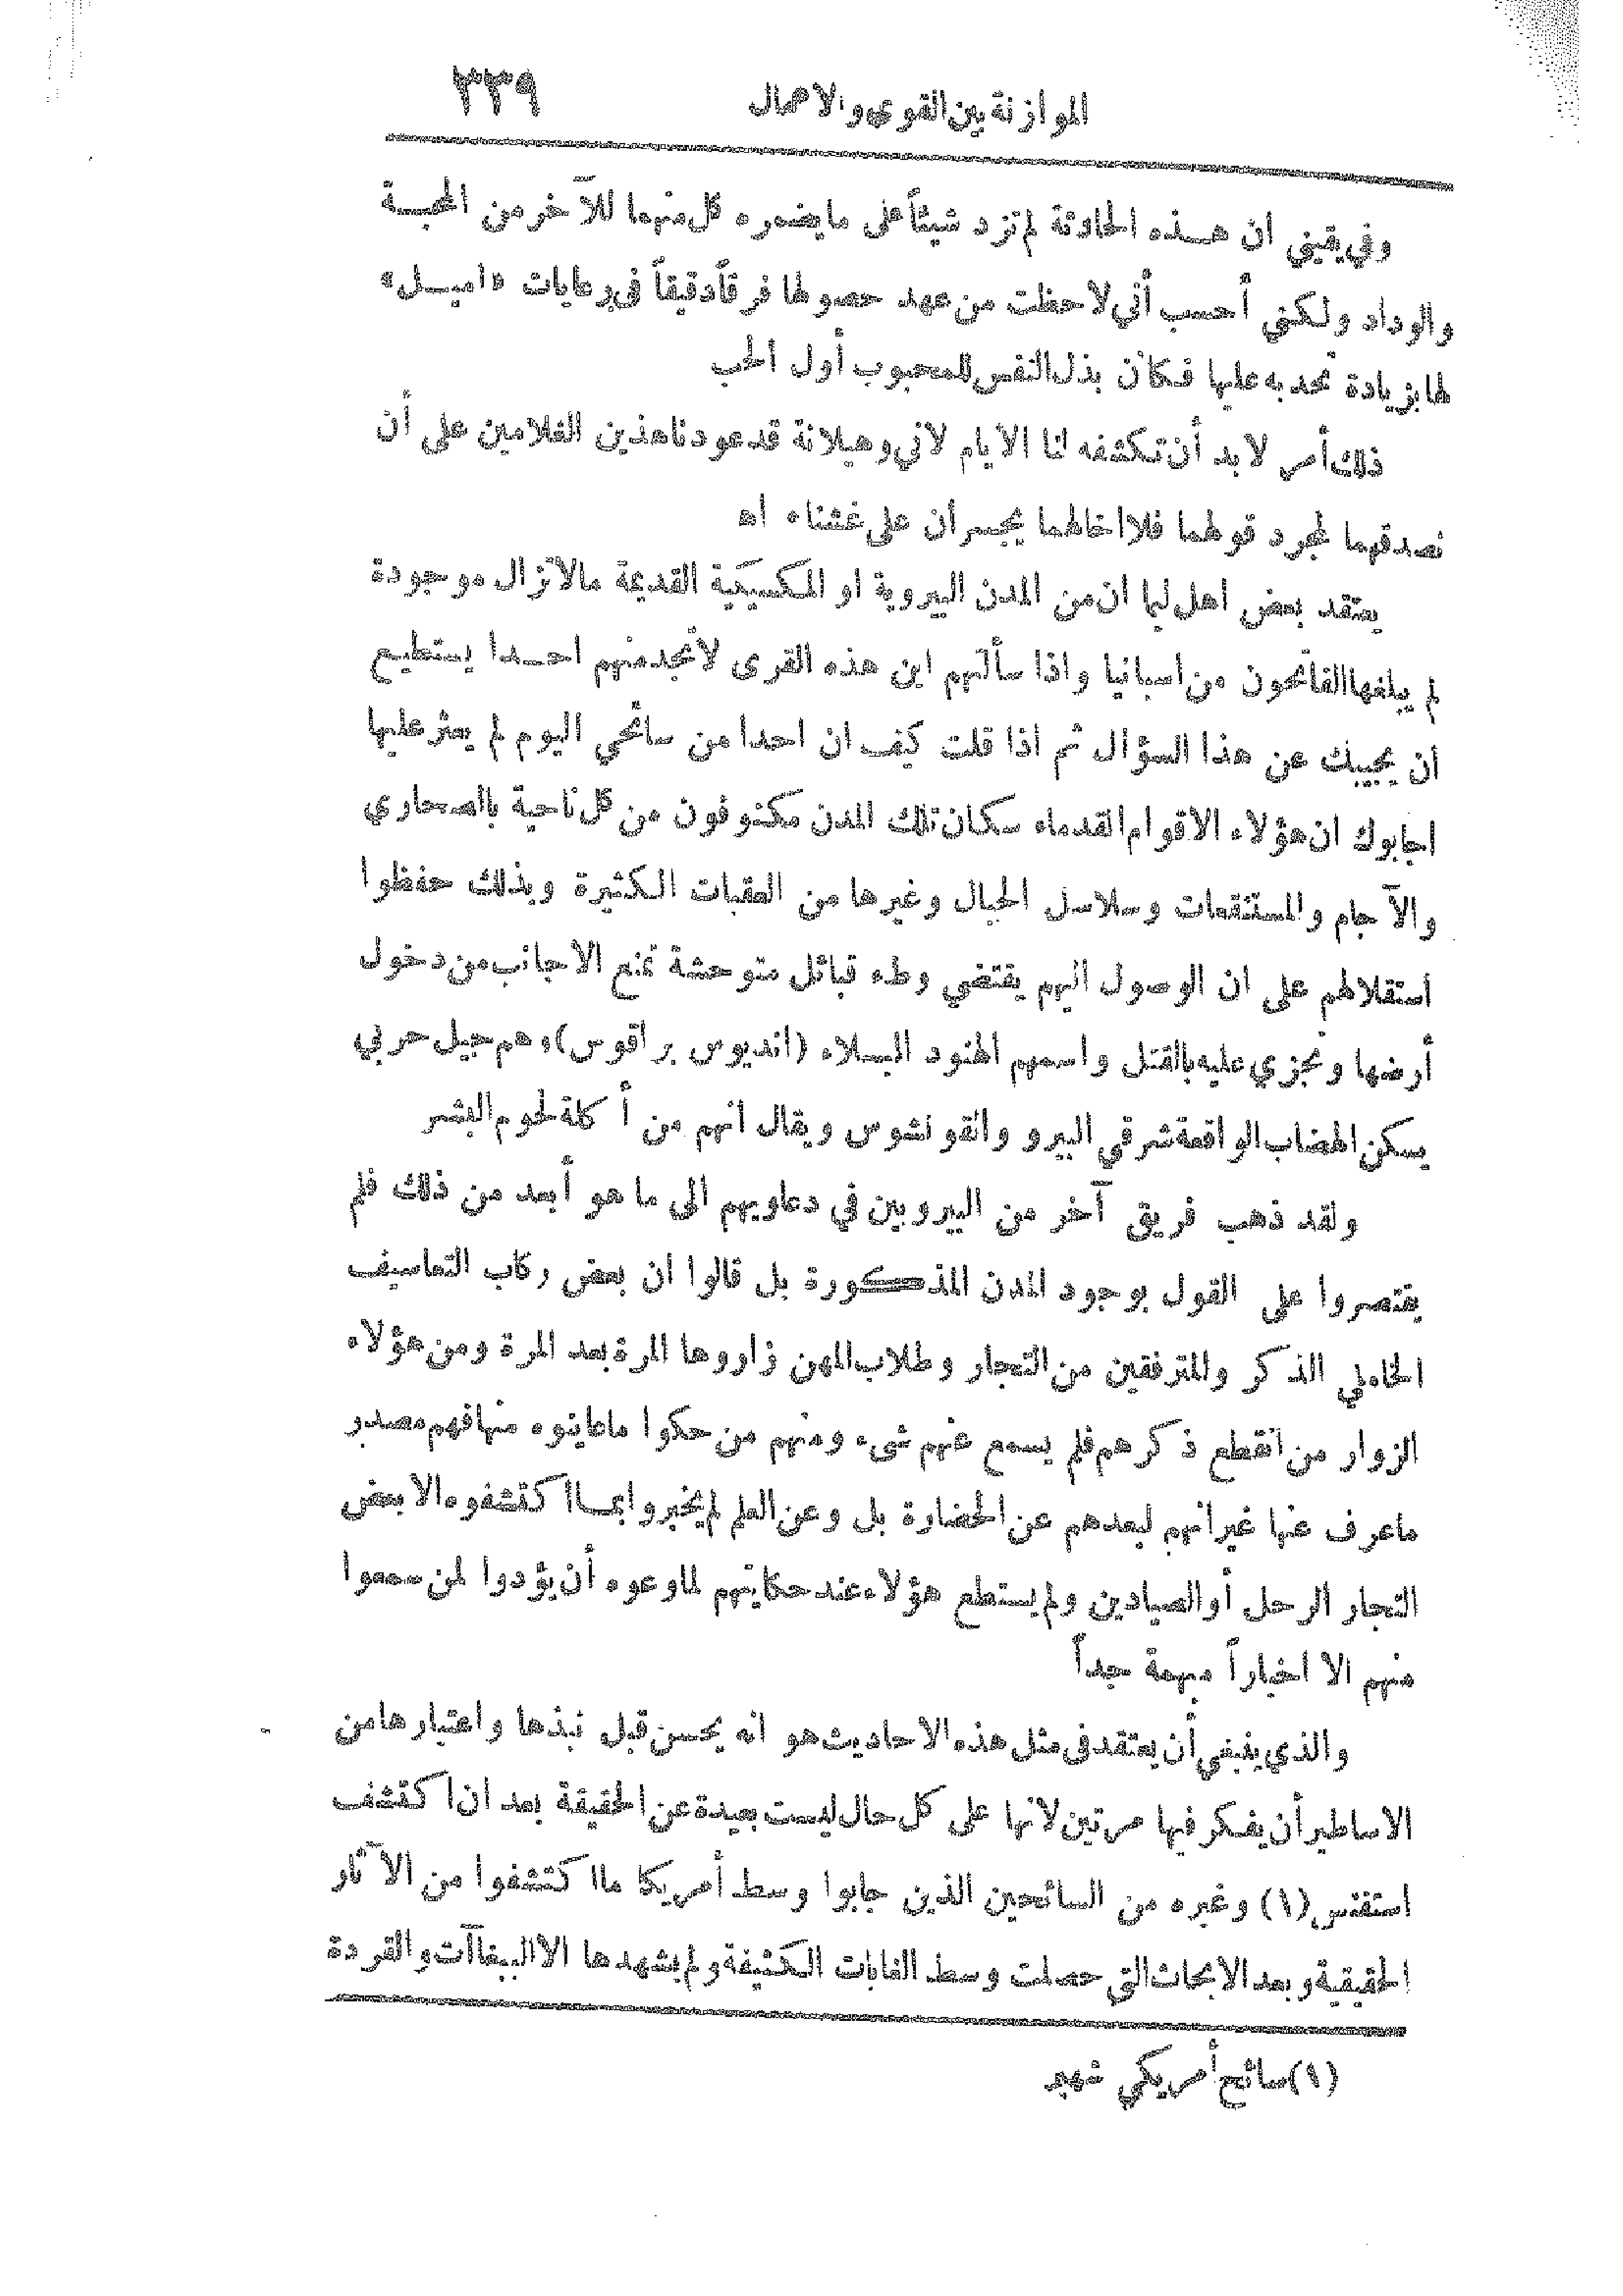 الموازنة بين القوى والاعمال ٣٣٩
وفي يقيني ان هذه الحادثة لم تزد شيئاً على ما يضمره كل منهما للآخر من المحبة
والوداد ولكني أحسب أني لاحظت من عهد حصولها فرقاً دقيقاً في رعايات «اميل»
لها بزيادة تحدبه عليها فكان بذل النفس للمحبوب أول الحب
ذلك أمر لا بد أن تكشفه لنا الايام لاني وهيلانة قد عودنا هذين الغلامين على أن
نصدقهما لمجرد قولهما فلا اخالهما يجسرأن على غشنا٠ اه
يعتقد بعض اهل ليما ان من المدن البيروية او المكسيكية القديمة مالا تزال موجودة
لم يبلغها الفاتحون من اسبانيا واذا سألتهم اين هذه القرى لا تجد منهم احدا يستطيع
أن يجيبك عن هذا السؤال ثم اذا قلت كيف ان احدا من سائحي اليوم لم يعثر عليها
اجابوك ان هؤلاء الاقوام القدماء سكان تلك المدن مكنوفون من كل ناحية بالصحاري
والآجام والمستنقعات وسلاسل الجبال وغيرها من العقبات الكثيرة وبذلك حفظوا
استقلالهم على ان الوصول اليهم يقتضي وطء قبائل متوحشة تمنع الاجانب من دخول
أرضها وتجزي عليه بالقتل واسمهم الهنود البسلاء (انديوس براقوس) وهم جيل حربي
يسكن الهضاب الواقعة شرقي البيرو وانقونشوس ويقال انهم من أكلة لحوم البشر
ولقد ذهب فريق آخر من البيروبين في دعاويهم الى ما هو أبعد من ذلك فلم
يقتصروا على القول بوجود المدن المذكورة بل قالوا ان بعض ركاب التعاسيف
الخاملي الذكر والمترفقين من التجار وطلاب المهن زاروها المرة بعد المرة ومن هؤلاء
الزوار من انقطع ذكرهم فلم يسمع عنهم شيء ومنهم من حكوا ما عاينوه منها فهم مصدر
ما عرف عنها غير انهم لبعدهم عن الحضارة بل وعن العلم لم يخبروا بما اكتشفوه الا بعض
التجار الرحل أو الصيادين ولم يستطع هؤلاء عند حكايتهم لما وعوه أن يؤدوا لمن سمعوا
منهم الا اخباراً مبهمة جداً
والذي ينبغي أن يعتقد في مثل هذه الاحاديث هو انه يحسن قبل نبذها واعتبارها من
الاساطير أن يفكر فيها مرتين لانها على كل حال ليست بعيدة عن الحقيقة بعد ان اكتشف
استفنس (١) وغيره من السائحين الذين جابوا وسط أمريكا ما اكتشفوا من الآثار
الحقيقية وبعد الابحاث التي حصلت وسط الغابات الكثيفة ولم يشهدها الا الببغاآت والقردة
(١) سائح أمريكي شهير